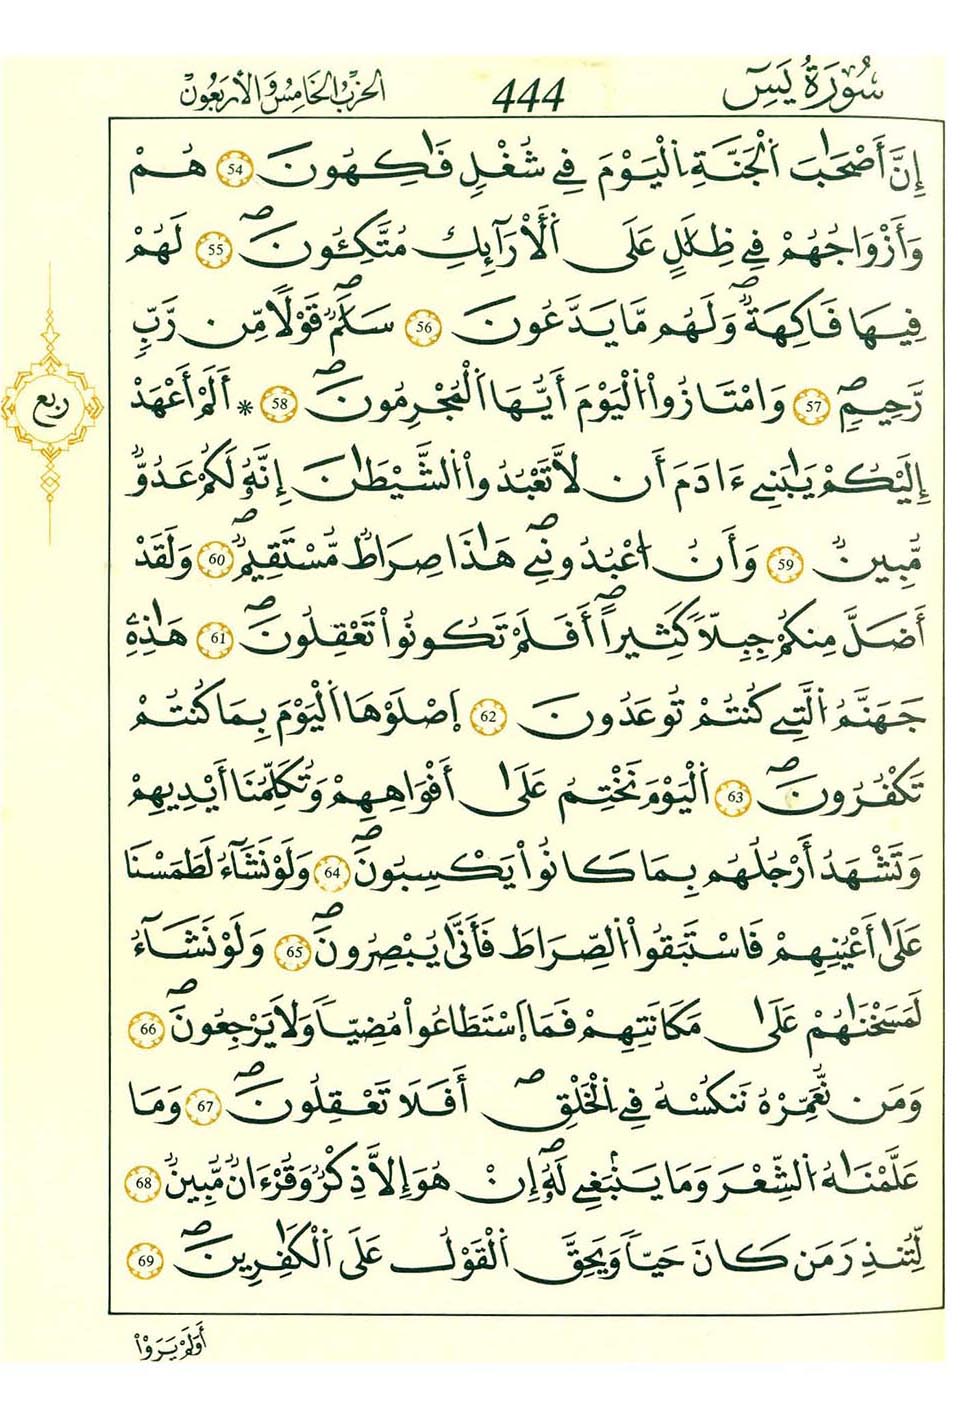 سُورَةُ يَسِٓ
444
الحِزْبُ الخَامِسُ وَالأَرْبَعُونَ
إِنَّ أَصْحَٰبَ اَ۬لْجَنَّةِ اِ۬لْيَوْمَ فِے شُغْلٖ فَٰكِهُونَ 54 هُمْ
وَأَزْوَاجُهُمْ فِے ظِلَٰلٍ عَلَى اَ۬لْأَرَآئِكِ مُتَّكِـُٔونَۖ 55 لَهُمْ
فِيهَا فَاكِهَةٞۖ وَلَهُم مَّا يَدَّعُونَ 56 سَلَٰمٞۖ قَوْلاٗ مِّن رَّبّٖ
رَّحِيمٖۖ 57 وَامْتَٰزُواْ اُ۬لْيَوْمَ أَيُّهَا اَ۬لْمُجْرِمُونَۖ 58 * أَلَمْ أَعْهَدْ
إِلَيْكُمْ يَٰبَنِےٓ ءَادَمَ أَن لاَّ تَعْبُدُواْ اُ۬لشَّيْطَٰنَ إِنَّهُۥ لَكُمْ عَدُوّٞ
مُّبِينٞ 59 وَأَنُ اُ۟عْبُدُونِےۖ هَٰذَا صِرَٰطٞ مُّسْتَقِيمٞۖ 60 وَلَقَدْ
أَضَلَّ مِنكُمْ جِبِلّاٗ كَثِيراًۖ أَفَلَمْ تَكُونُواْ تَعْقِلُونَۖ 61 هَٰذِهِۦ
جَهَنَّمُ اُ۬لتِے كُنتُمْ تُوعَدُونَ 62 اَ۪صْلَوْهَا اَ۬لْيَوْمَ بِمَا كُنتُمْ
تَكْفُرُونَۖ 63 اَ۬لْيَوْمَ نَخْتِمُ عَلَىٰٓ أَفْوَٰهِهِمْ وَتُكَلِّمُنَا أَيْدِيهِمْ
وَتَشْهَدُ أَرْجُلُهُم بِمَا كَانُواْ يَكْسِبُونَۖ 64 وَلَوْ نَشَآءُ لَطَمَسْنَا
عَلَىٰٓ أَعْيُنِهِمْ فَاسْتَبَقُواْ اُ۬لصِّرَٰطَ فَأَنَّىٰ يُبْصِرُونَۖ 65 وَلَوْ نَشَآءُ
لَمَسَخْنَٰهُمْ عَلَىٰ مَكَانَتِهِمْ فَمَا اَ۪سْتَطَٰعُواْ مُضِيّاٗ وَلَا يَرْجِعُونَۖ 66
وَمَن نُّعَمِّرْهُ نَنكُسْهُ فِے اِ۬لْخَلْقِۖ أَفَلَا تَعْقِلُونَۖ 67 وَمَا
عَلَّمْنَٰهُ اُ۬لشِّعْرَ وَمَا يَنۢبَغِے لَهُۥٓۖ إِنْ هُوَ إِلَّا ذِكْرٞ وَقُرْءَانٞ مُّبِينٞ 68
لِّتُنذِرَ مَن كَانَ حَيّاٗ وَيَحِقَّ اَ۬لْقَوْلُ عَلَى اَ۬لْكَٰفِرِينَۖ 69
ربع
أَوَلَمْ يَرَوْاْ